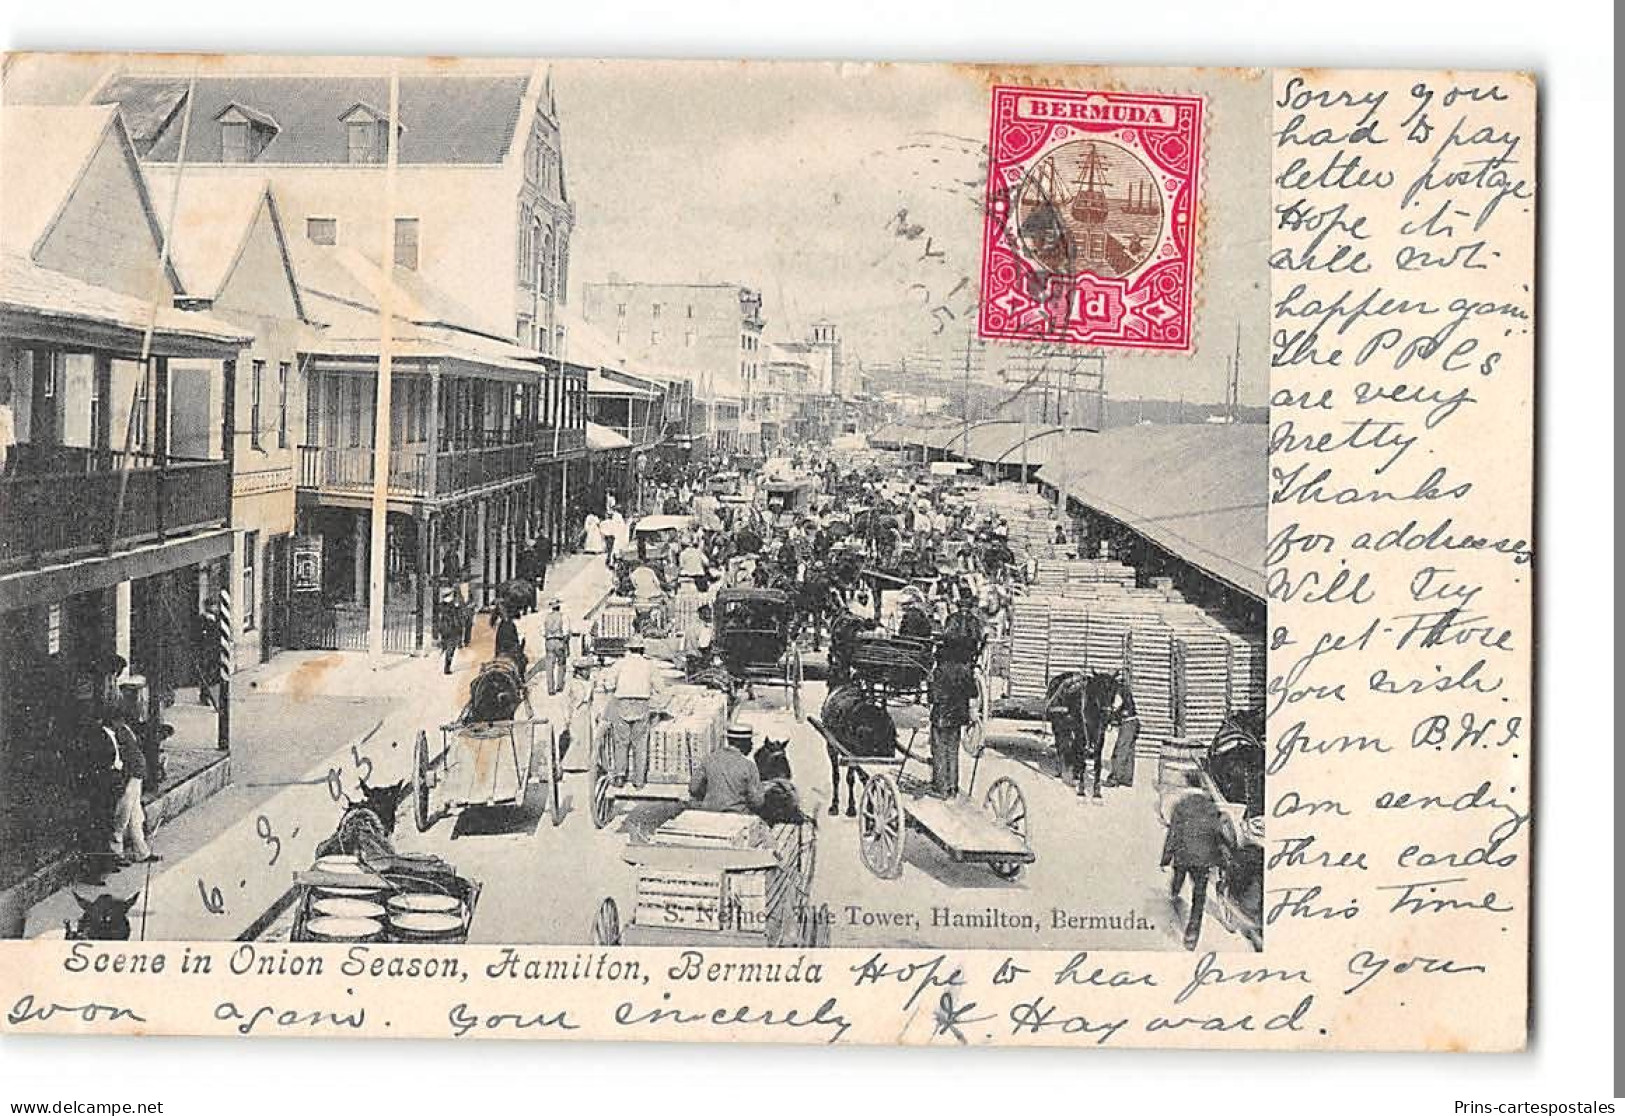 BERMUDA
1d
Sorry you
had to pay
letter postage.
Hope it
will not
happen gain.
The P P C's
are very
pretty.
Thanks
for addresses
Will try
& get those
you wish
from B.W.I.
am sending
three cards
this time.
6. 3. 03
S. Nelmes, The Tower, Hamilton, Bermuda.
Scene in Onion Season, Hamilton, Bermuda Hope to hear from you
soon again. Your sincerely Hayward.
Prins-cartespostales